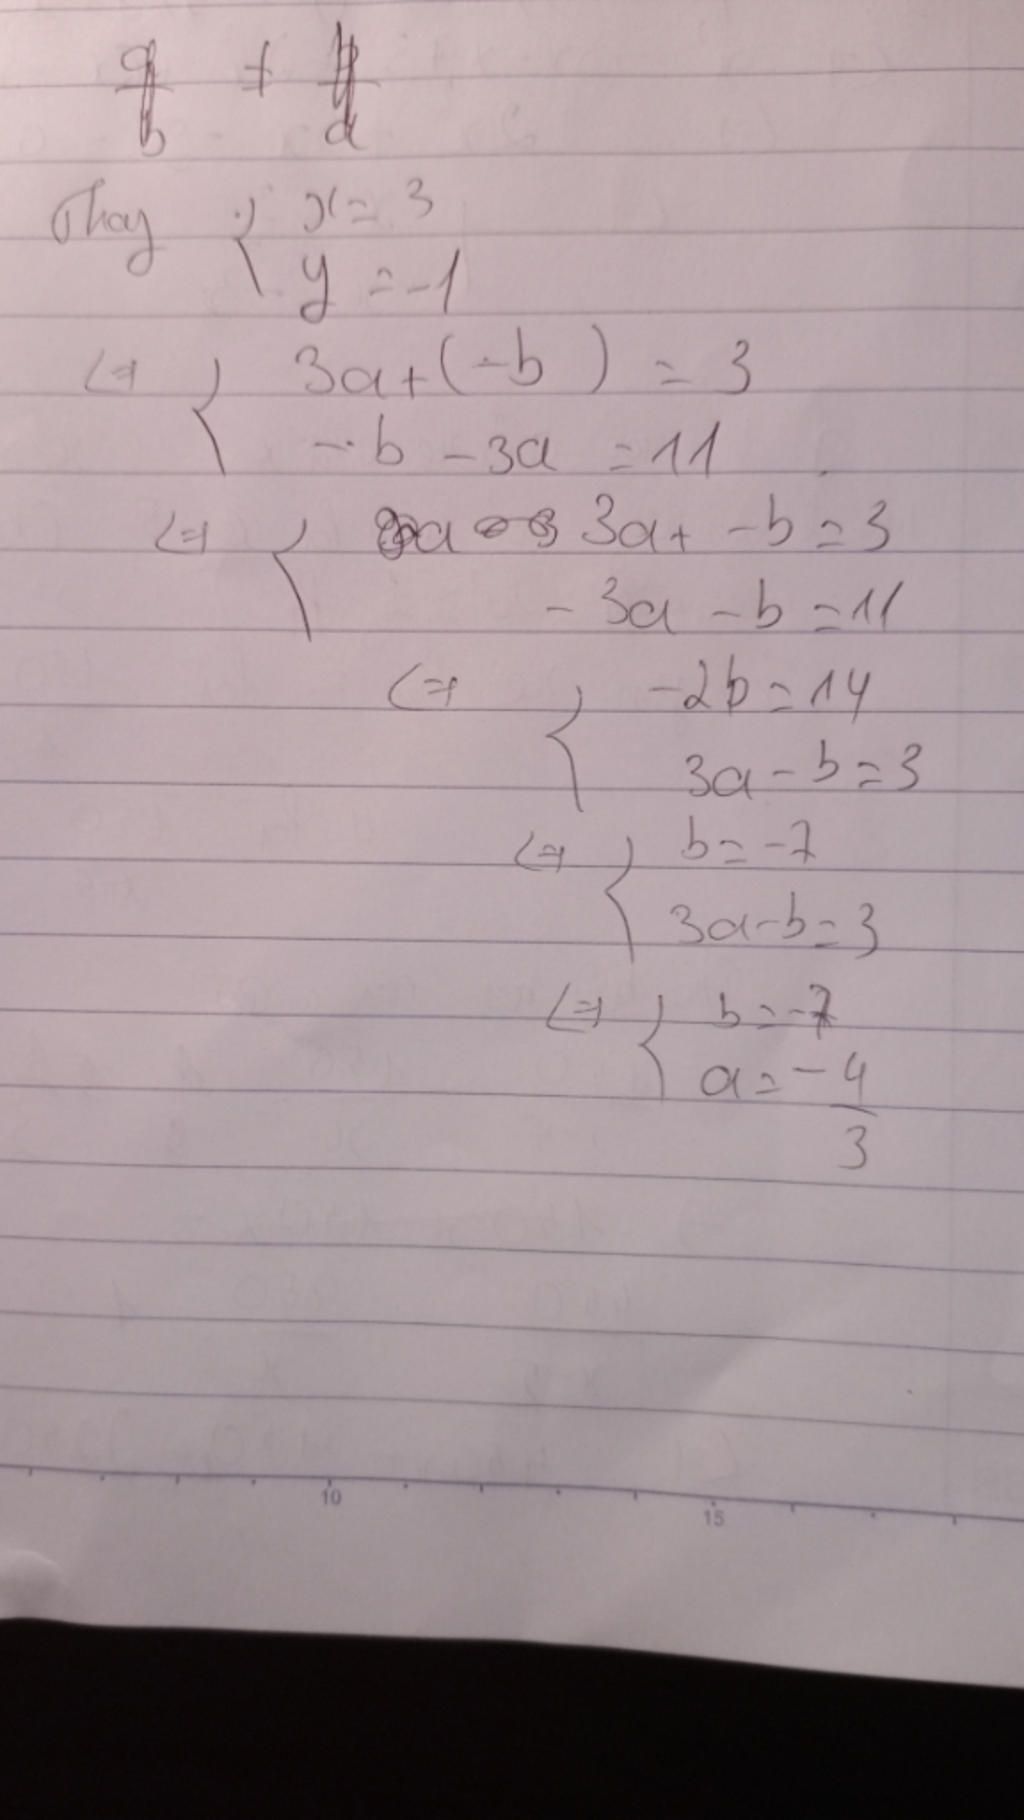 a/b ≠ b/a
Thay { x = 3
y = -1
<=> { 3a + (-b) = 3
-b - 3a = 11
<=> { 3a + -b = 3
-3a - b = 11
<=> { -2b = 14
3a - b = 3
<=> { b = -7
3a - b = 3
<=> { b = -7
a = -4/3
10 15